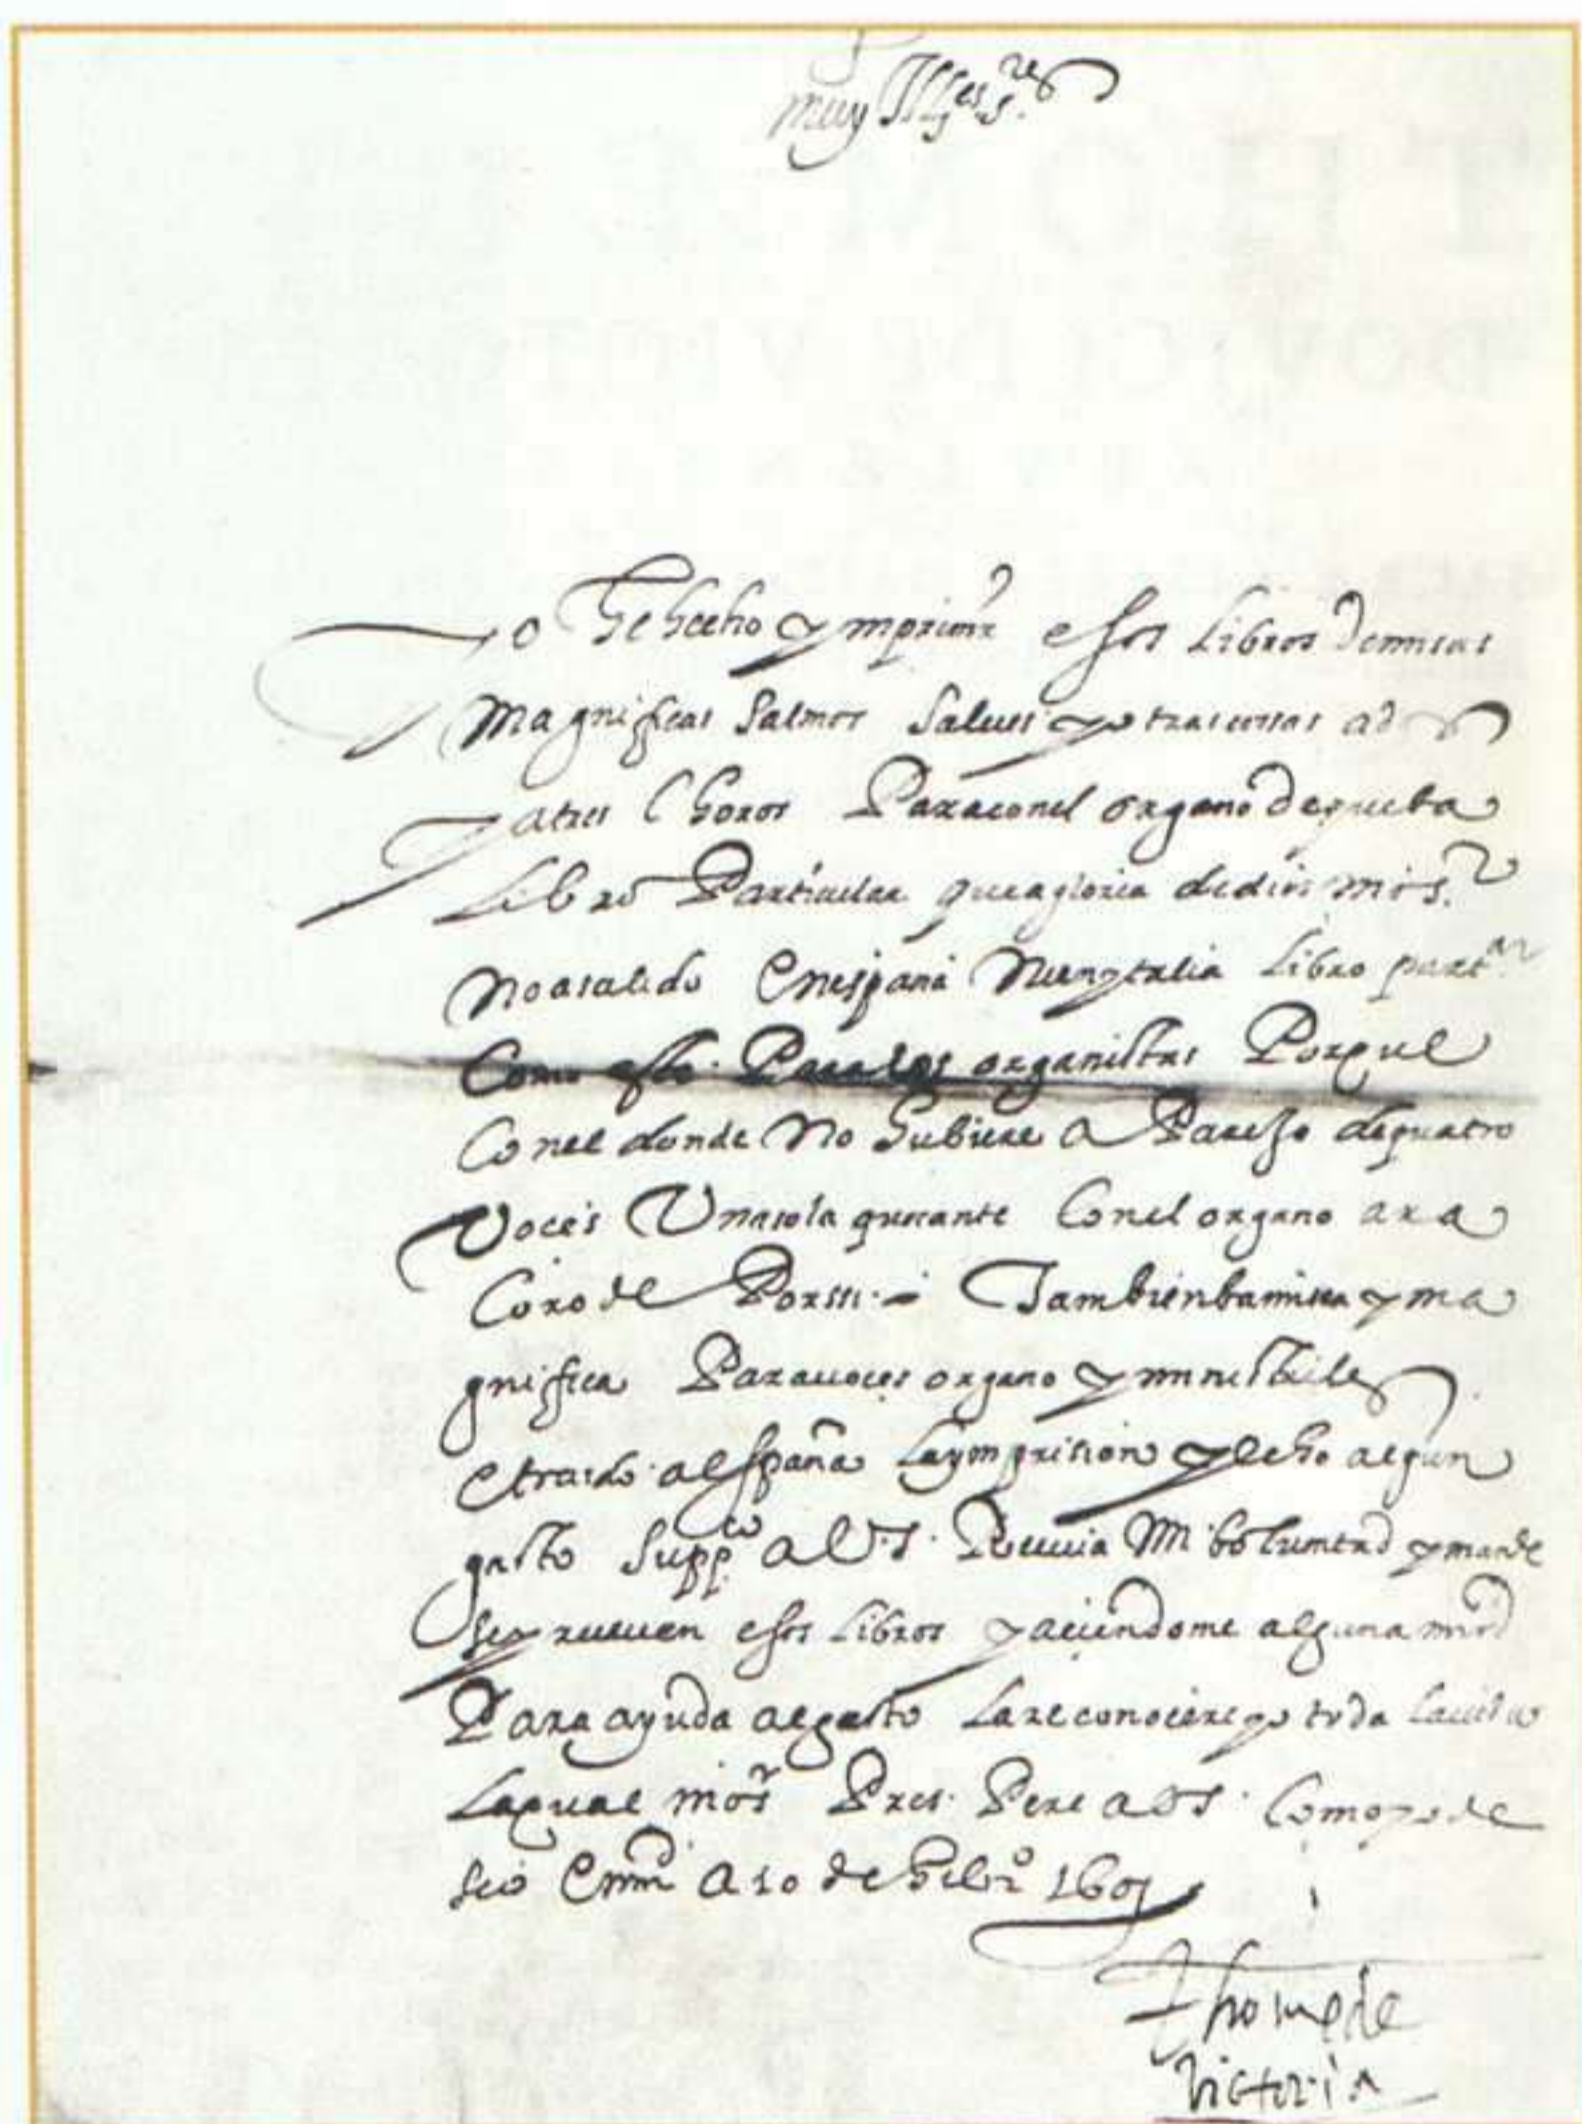 muy Ill.es s.res
Yo he hecho ymprimir esos Libros de misas
magnificas salmos salues y otras cossas a dos
y a tres Choros Para con el organo de que ba
Libro Particular que a gloria de dios mio s.r
no a salido en españa ni en ytalia Libro part.ar
Como este Para los organistas Porque
Con el donde no hubiere aparejo de quatro
voces Una sola que cante Con el organo ara
Coro de Por ssi - Tambien ba missa y ma
gnifica Para voces organo y ministriles
e traido a españa la ymprision y echo algun
gasto supp.co a V.S. Reciuia mi boluntad y mande
se prueuen esos Libros y aciendome alguna mrd
Para ayuda al gasto La reconocere yo toda la vida
La qual n.ro s.r Pres. Pere a V.S. Como yo de
seo en m.d a 10 de hebr.o 1601
Thome de
victoria